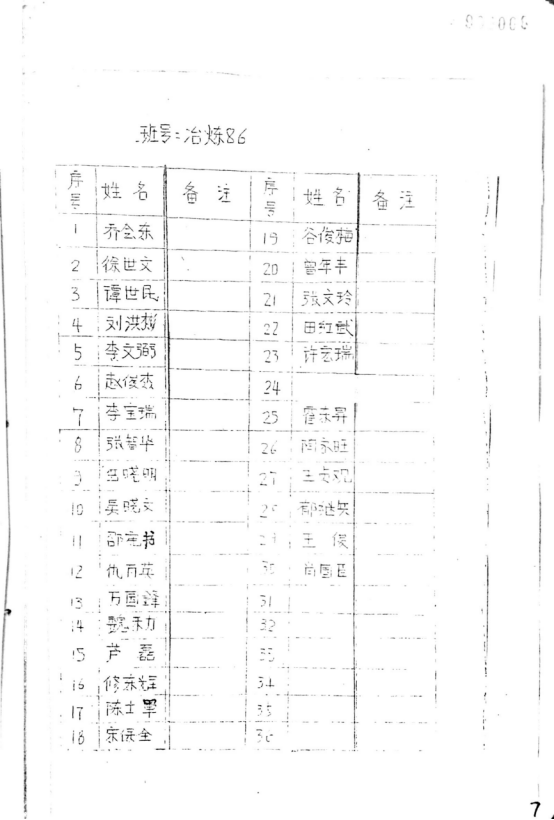 班号:冶炼86
序号 姓名 备注 序号 姓名 备注
1 乔会东 19 谷俊梅
2 徐世文 20 曾军丰
3 谭世民 21 张文玲
4 刘洪彭 22 田红武
5 李文弼 23 许宏瑞
6 赵俊杰 24
7 李宝瑞 25 霍东昇
8 张智华 26 陶永旺
9 晓明 27 王贞观
10 吴晓文 28 郁继矢
11 邵宪书 29 王俊
12 仇百英 30 尚国臣
13 万国锋 31
14 魏利力 32
15 芦磊 33
16 修东辉 34
17 陈士军 35
18 宋保全 36
7